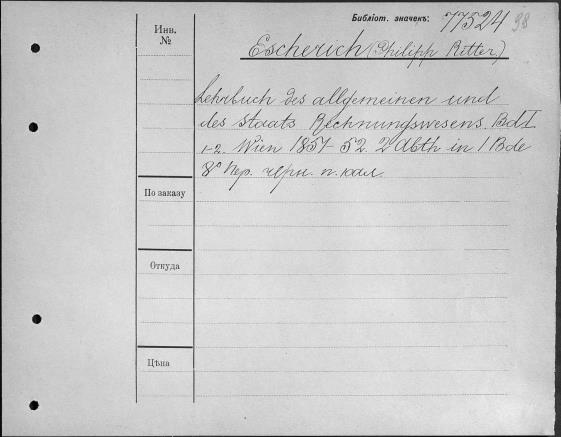 Библіот. значекъ: 77524 98
Инв.
№
Escherich (Philipp Ritter)
Lehrbuch des allgemeinen und
des Staats Rechnungswesens. Bd I
1-2. Wien 1851-52. 2 Abth in 1 Bde
8° пер. черн. п. кал.
По заказу
Откуда
Цѣна